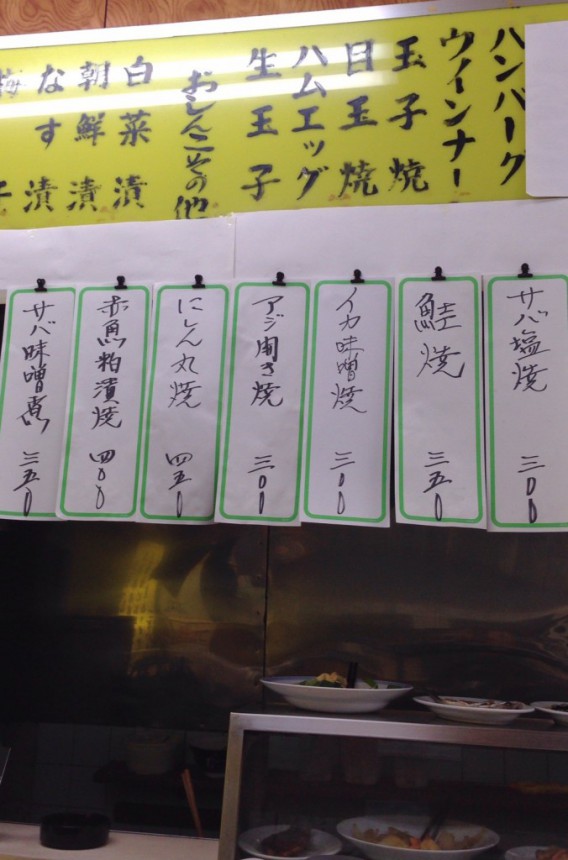 ハンバーグ
ウインナー
玉子焼
目玉焼
ハムエッグ
生玉子
おしんこその他
白菜漬
朝鮮漬
なす漬
サバ塩焼
三〇〇
鮭焼
三五〇
イカ味噌焼
三〇〇
アジ開き焼
三〇〇
にしん丸焼
四五〇
赤魚粕漬焼
四〇〇
サバ味噌煮
三五〇